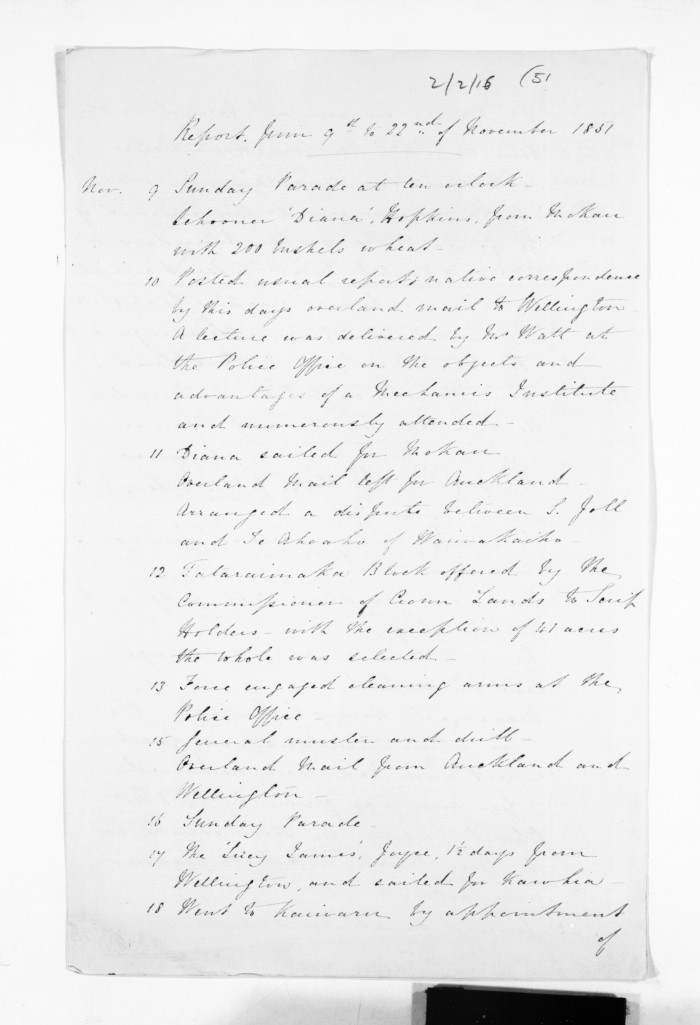 2/2/16 (51
Report from 9th to 22nd of November 1851
Nov. 9 Sunday Parade at ten oclock -
Schooner 'Diana', Hopkins, from Mokau
with 200 bushels wheat -
10 Posted usual report & native correspondence
by this days overland mail to Wellington -
A lecture was delivered by Mr Watt at
the Police Office on the objects and
advantages of a Mechanics Institute
and numerously attended -
11 Diana sailed for Mokau
Overland Mail left for Auckland -
Arranged a dispute between S. Joll
and Te Ahoaho of Waiwakaiho -
12 Tataraimaka Block offered by the
Commissioner of Crown Lands to Scrip
Holders - with the exception of 41 acres
the whole was selected -
13 Force engaged cleaning arms at the
Police Office -
15 General muster and drill -
Overland Mail from Auckland and
Wellington -
16 Sunday Parade -
17 The 'Lucy James', Joyce, 1½ days from
Wellington, and sailed for Kawhia -
18 Went to by appointment
of